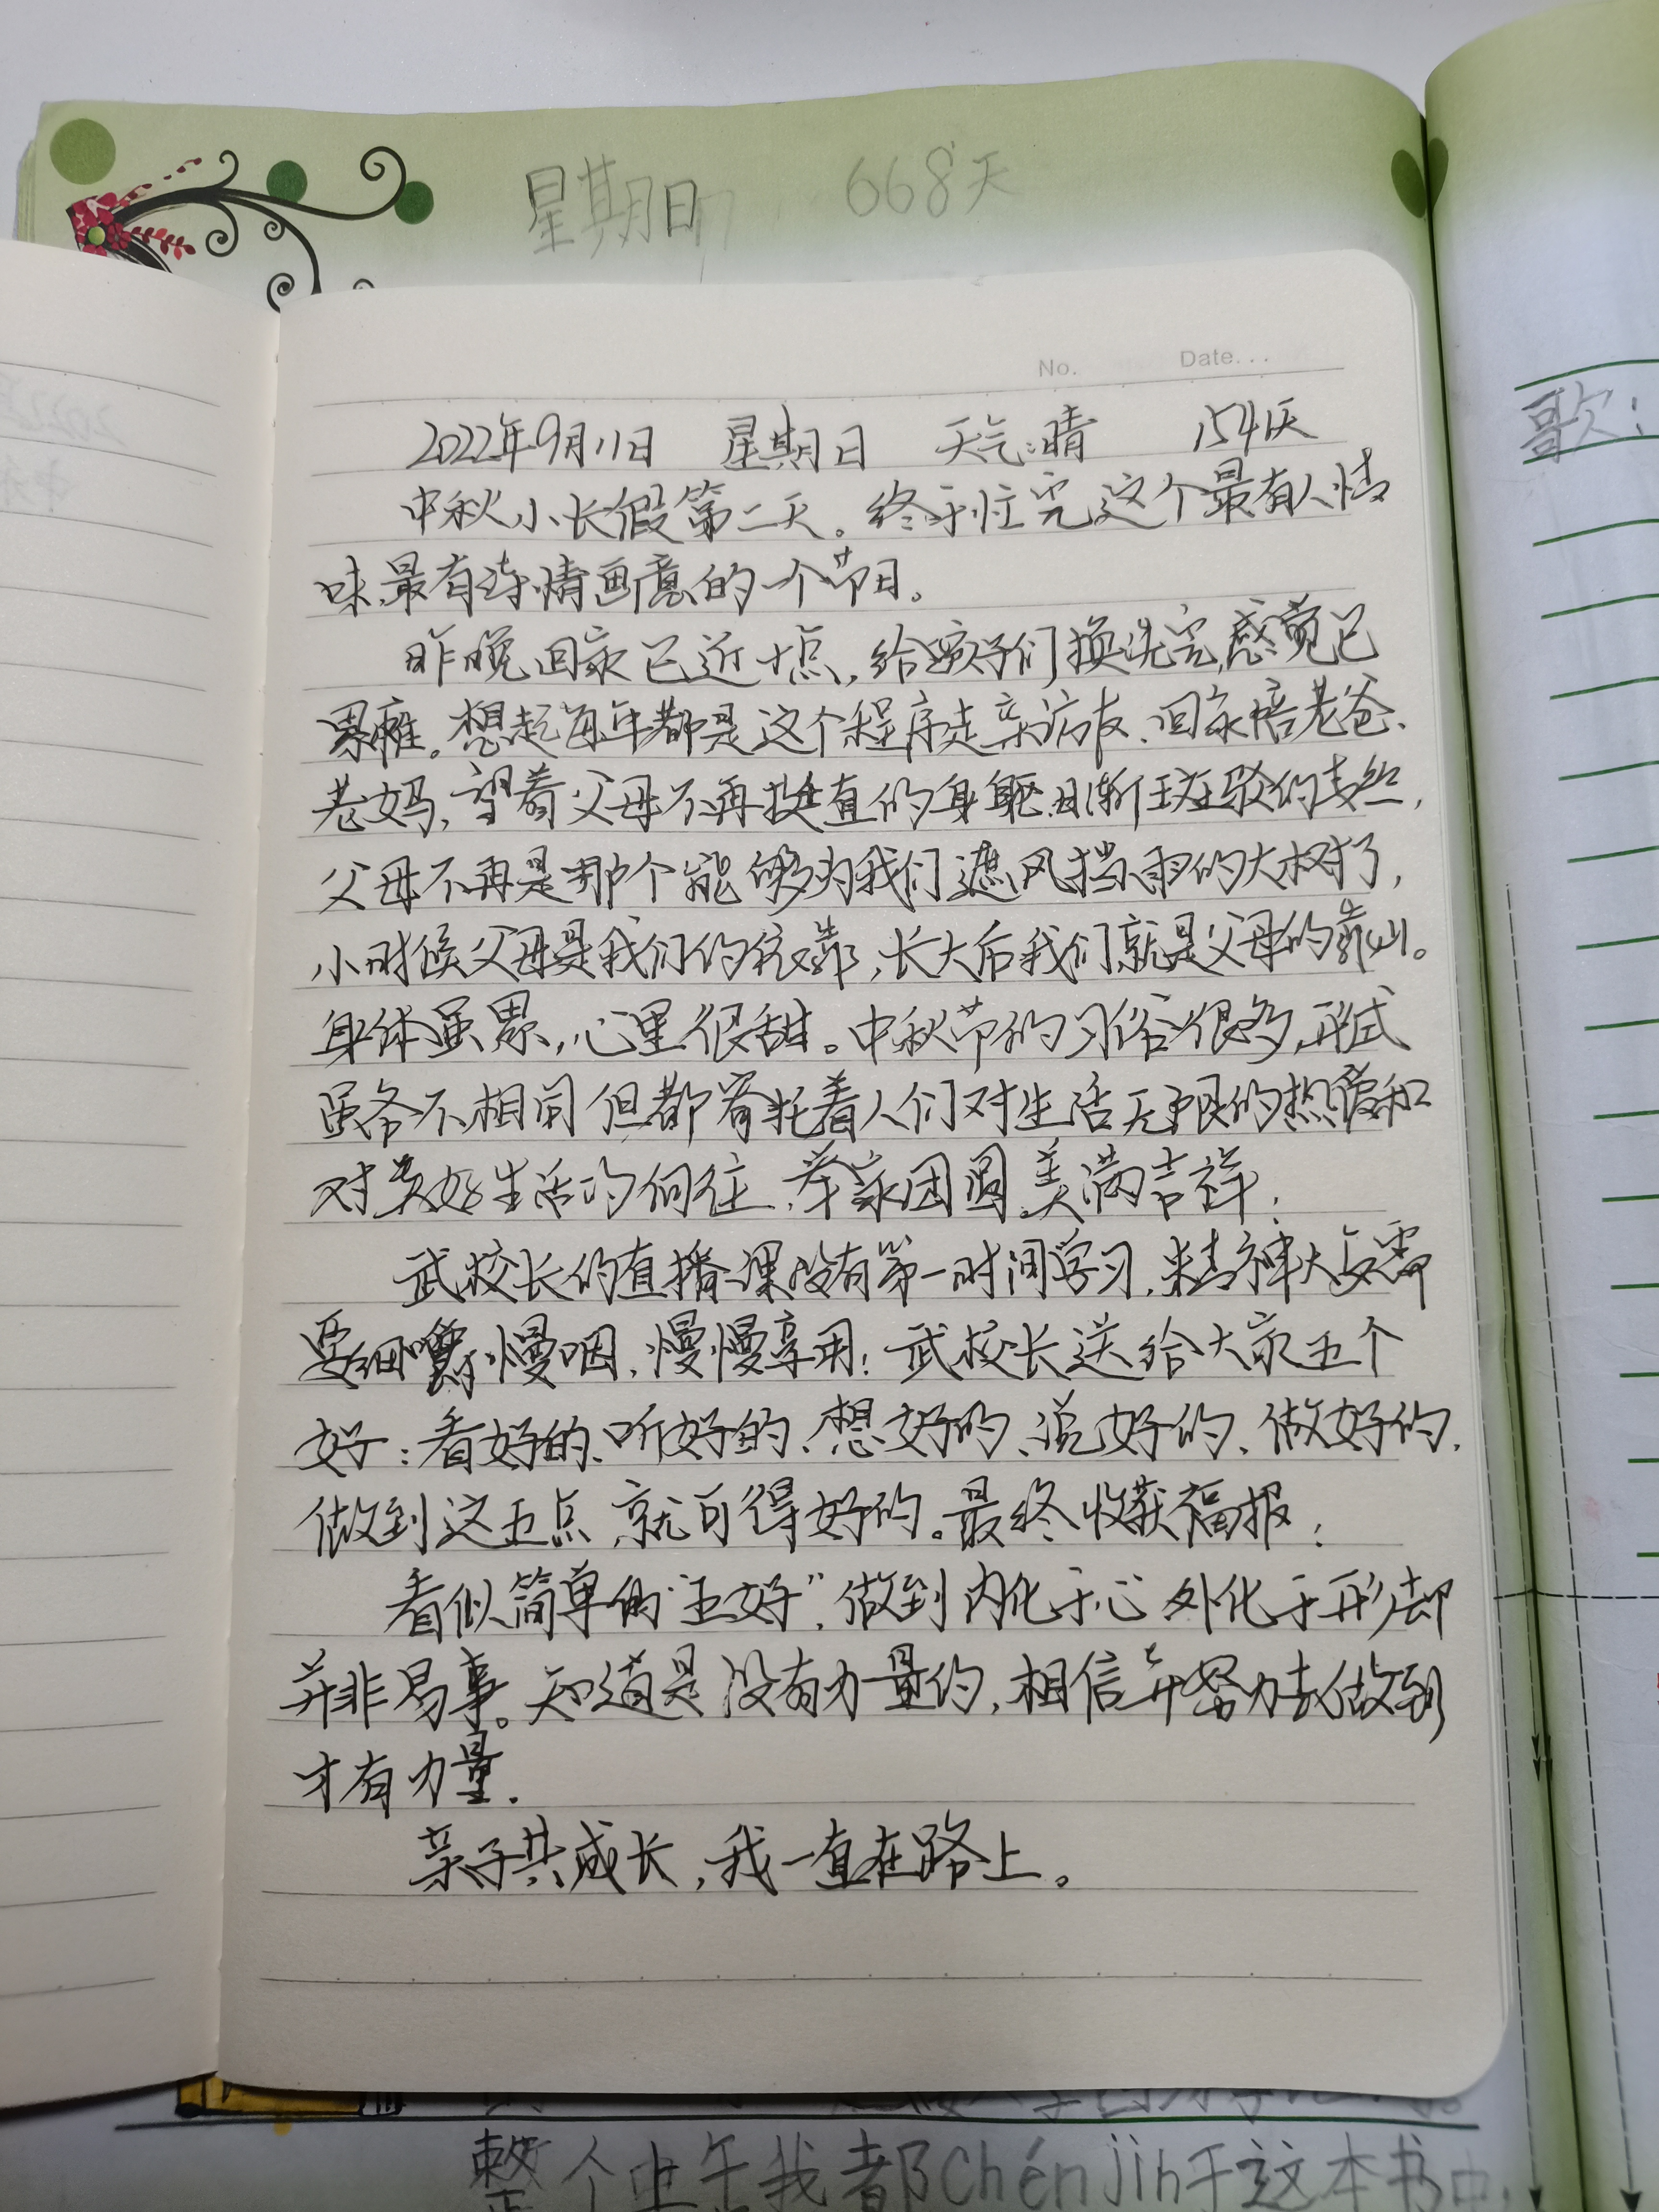 星期日 668天
No. Date...
2022年9月11日 星期日 天气:晴 154天
中秋小长假第二天。终于忙完这个最有人情
味、最有诗情画意的一个节日。
昨晚回家已近十点,给孩子们换洗完,感觉已
累瘫。想起每年都是这个程序走亲访友、回家陪老爸、
老妈,望着父母不再挺直的身躯、日渐斑驳的青丝,
父母不再是那个能够为我们遮风挡雨的大树了,
小时候父母是我们的依靠,长大后我们就是父母的靠山。
身体虽累,心里很甜。中秋节的习俗很多,形式
虽各不相同但都寄托着人们对生活无限的热爱和
对美好生活的向往,举家团圆、美满吉祥!
武校长的直播课没有第一时间学习,精神大餐需
要细嚼慢咽,慢慢享用!武校长送给大家五个
好:看好的、听好的、想好的、说好的、做好的,
做到这五点,就可得好的。最终收获福报!
看似简单的“五好”,做到内化于心 外化于形却
并非易事。知道是没有力量的,相信并努力去做到
才有力量.
亲子共成长,我一直在路上。
歌:
整个上午我都Chén jìn于这本书中